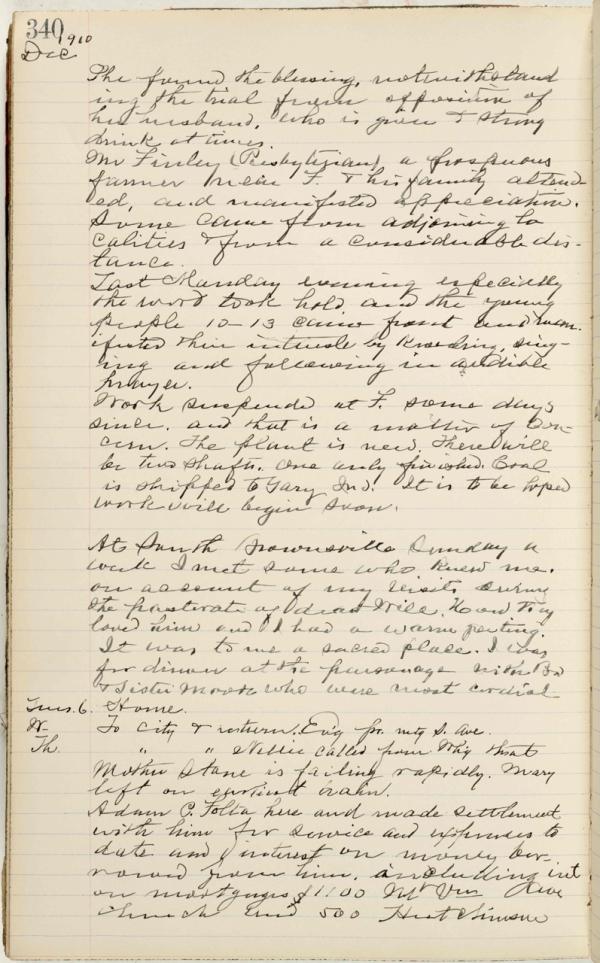 340 1910
Dec
She found the blessing, notwithstand
ing the trial from opposition of
her husband, who is given to strong
drink at times.
Mr Finley (Presbyterian) a prosperous
farmer near F. & his family attend-
ed, and manifested appreciation.
Some came from adjoining lo
calities & from a considerable dis-
tance.
Last Monday evening especially
the word took hold and the young
people 10-13 came front and man-
ifested their interest by kneeling, sing-
ing and following in audible
prayer.
Work suspended at F. some days
since, and that is a matter of con-
cern. The plant is new. There will
be two shafts, one only finished. Coal
is shipped to Gary Ind. It is to be hoped
work will begin soon.
At South Brownsville Sunday a
week I met some who knew me.
on account of my visits during
the pastorate of dear Will. How they
loved him and I had a warm greeting.
It was to me a sacred place. I was
for dinner at the parsonage with Bro
& Sister Moore who were most cordial
Tues. 6. Home.
W- To city & return. Ev'g pr. mtg S. Ave.
Th. " " Nellie called from that
Mother Stone is failing rapidly. Mary
left on earliest train.
Adam C. Folta here and made settlement
with him for service and expenses to
date and interest on money bor-
rowed from him, including int
on mortgages $1100 Mt Ave
Church and 500